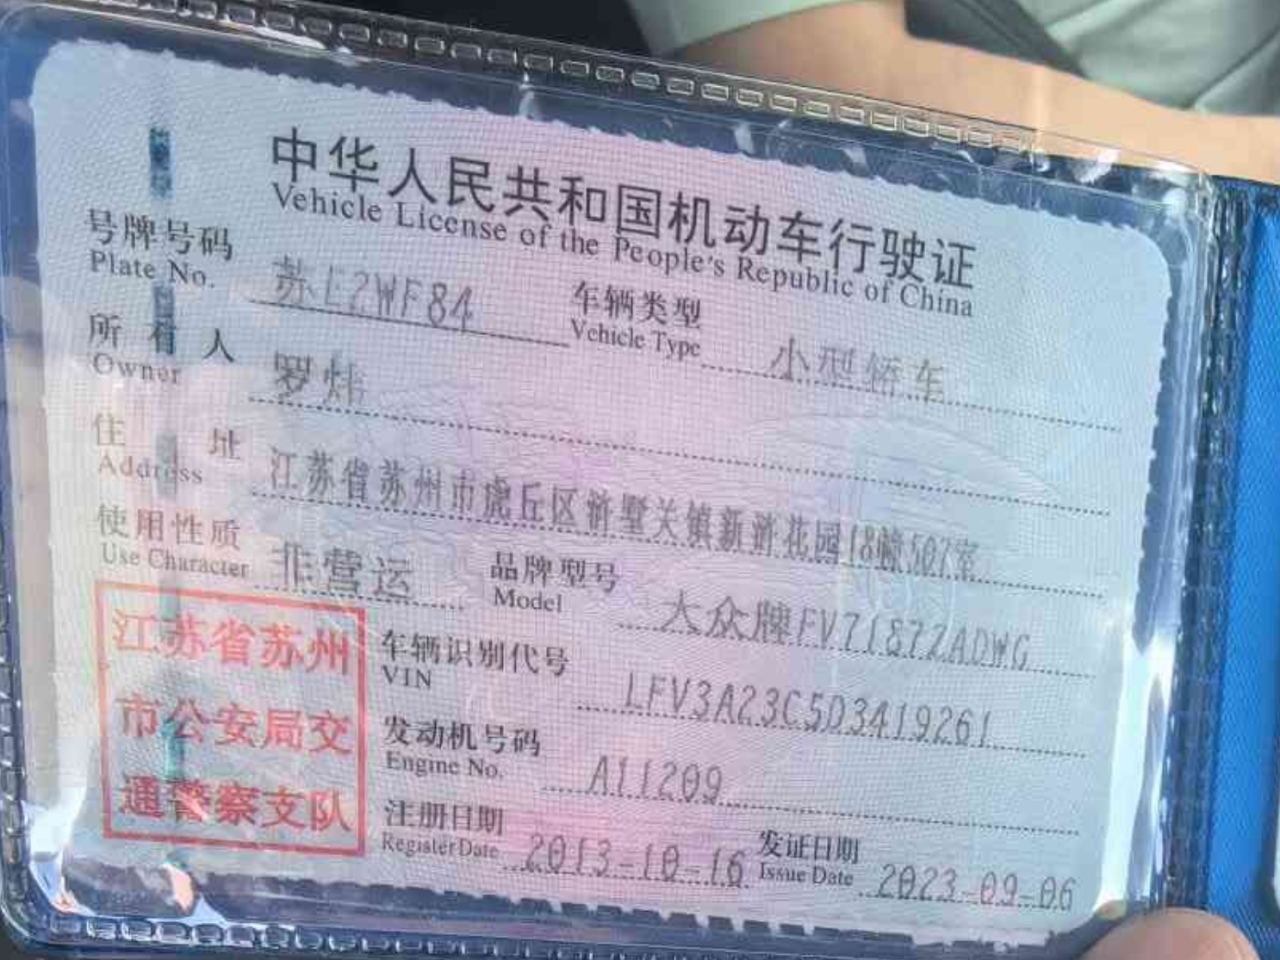 中华人民共和国机动车行驶证
Vehicle License of the People's Republic of China
号牌号码 苏E2WF84 车辆类型 小型轿车
Plate No. Vehicle Type
所有人 罗炜
Owner
住址 江苏省苏州市虎丘区浒墅关镇新浒花园18幢507室
Address
使用性质 非营运 品牌型号 大众牌FV7187ZADWG
Use Character Model
江苏省苏州
市公安局交
通警察支队
车辆识别代号 LFV3A23C5D3419261
VIN
发动机号码 A11209
Engine No.
注册日期 2013-10-16 发证日期 2023-09-06
Register Date Issue Date